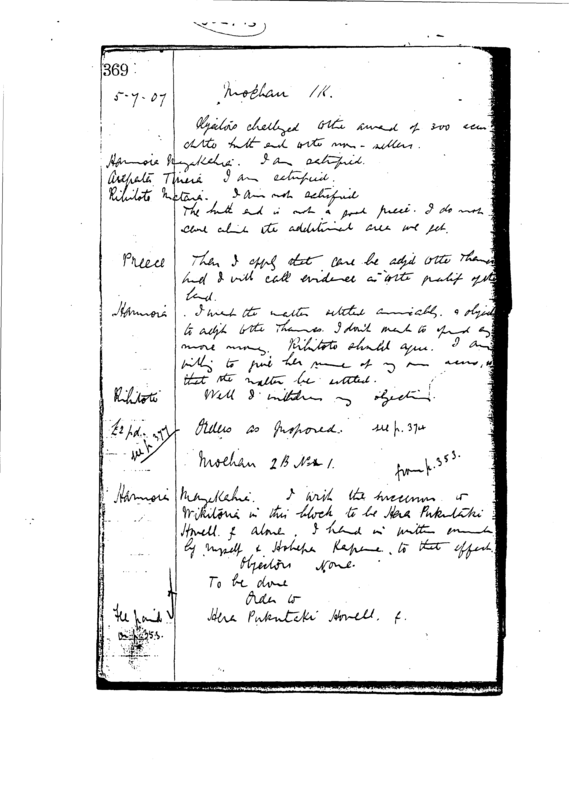 369
5-7-07 Moehau 1K.
Objectors challenged to the award of 300 acres
at the hill end to the non-sellers.
Hamiora Mangakahia. I am satisfied.
Arepata Tinira I am satisfied.
Rihitoto Mataia. I am not satisfied
The hill end is not a good piece. I do not
care about the additional area we get.
Preece Then I apply that case be adjd to the Thames
and I will call evidence as to the quality of the
land.
Hamiora I want the matter settled amicably. I object
to adjt to the Thames. I don't want to spend any
more money. Rihitoto should agree. I am
willing to give her some of my own acres, so
that the matter be settled.
Rihitoto Well I withdraw my objection.
£2 pd. see p. 377 Orders as proposed. see p. 374
Moehau 2B No 1. from p. 353.
Hamiora Mangakahia. I wish the successor to
Wikitoria in this block to be Hera Putukaki
Howell f alone. I hand in written
by myself & Hohepa Kapene to that effect.
Objectors None.
To be done
Order to
Hera Howell. f.
Fee paid
on p. 353.